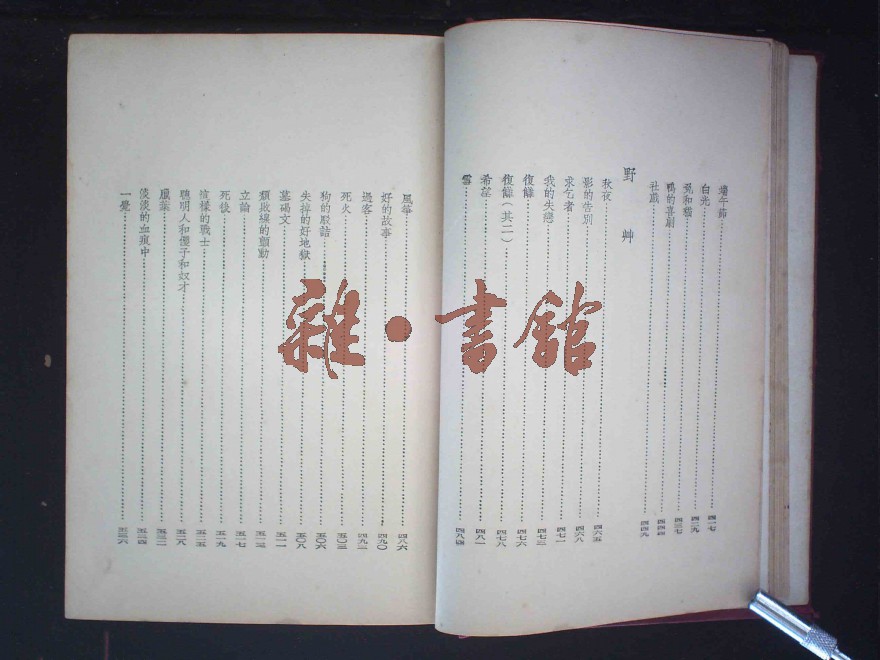 端午節…………四一七
白光…………四二九
兔和貓…………四三七
鴨的喜劇…………四四四
社戲…………四四九
野艸
秋夜…………四六五
影的告別…………四六八
求乞者…………四七一
我的失戀…………四七三
復讎…………四七六
復讎(其二)…………四七八
希望…………四八一
雪…………四八四
風箏…………四八六
好的故事…………四九〇
過客…………四九三
死火…………五〇三
狗的駁詰…………五〇六
失掉的好地獄…………五〇八
墓碣文…………五一一
頹敗線的顫動…………五一三
立論…………五一七
死後…………五一九
這樣的戰士…………五二五
聰明人和傻子和奴才…………五二八
臘葉…………五三二
淡淡的血痕中…………五三四
一覺…………五三六
雜·書館